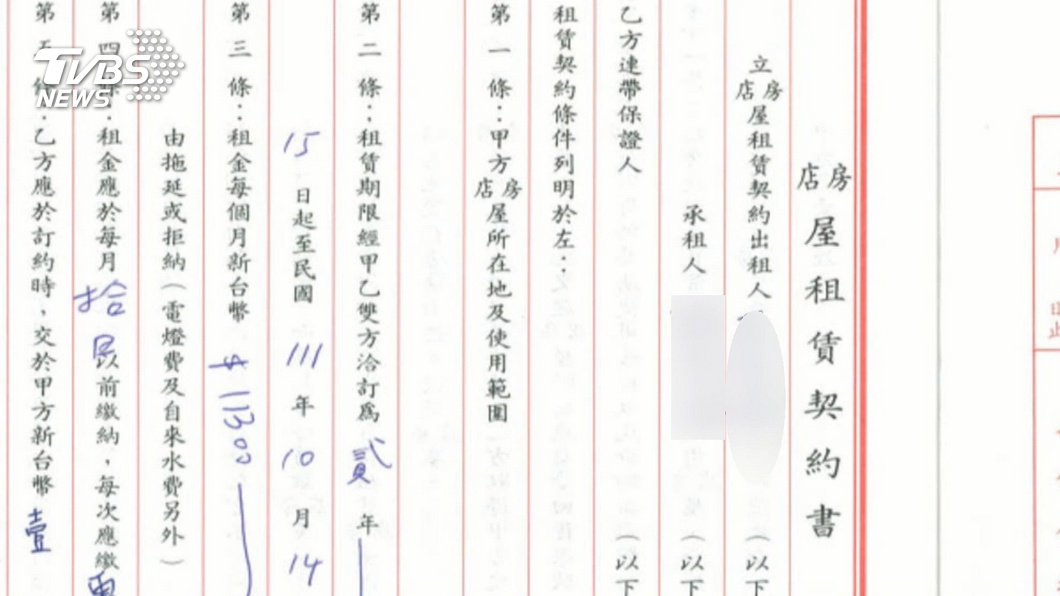 房店屋租賃契約書
立房店屋租賃契約出租人（以下
承租人（以下
乙方連帶保證人（以下
租賃契約條件列明於左：
第一條：甲方房店屋所在地及使用範圍
第二條：租賃期限經甲乙雙方洽訂爲貳年
15日起至民國111年10月14
第三條：租金每個月新台幣$11300
由拖延或拒納（電燈費及自來水費另外）
第四條：租金應於每月拾日以前繳納，每次應繳
第五條：乙方應於訂約時，交於甲方新台幣壹
TVBS
NEWS